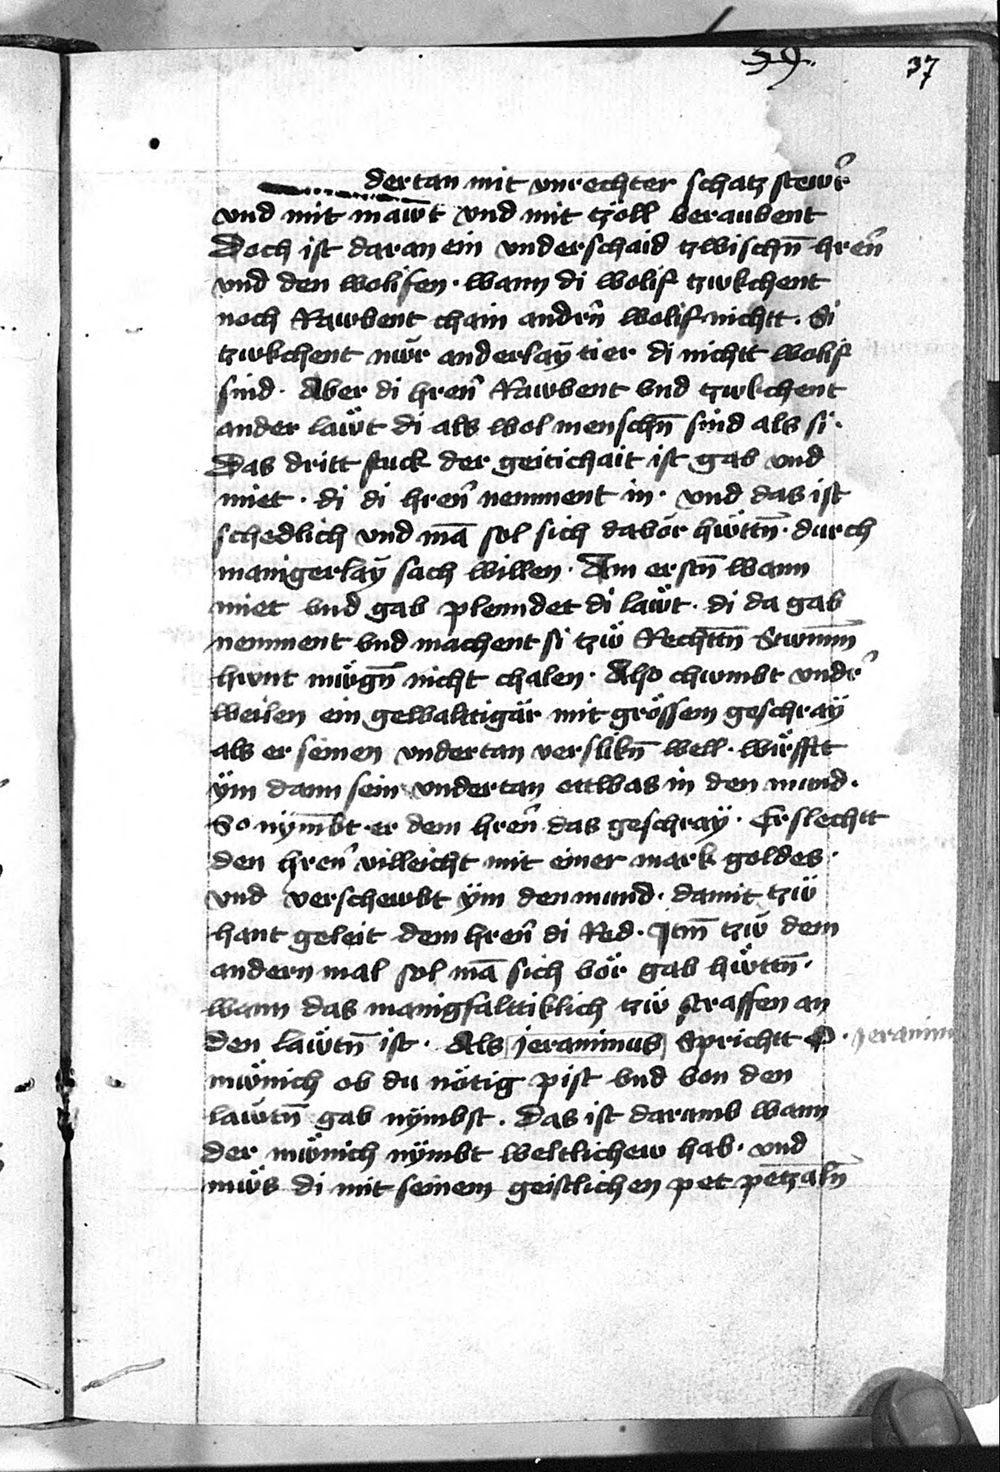 59.
37
dertan mit vnrechter schatz stewr̄
vnd mit maw̄t vnd mit tzöll beraubent
Doch ist daran ein vnderschaid tzwischn̄ hren̄
vnd den wolifen · wann di wolif tzwkchent
noch Rawbent chain andrn̄ wolif nichtt . Si
tzwkchent nẅr anderlaÿ tier di nichtt wolif
sind · Aber di hren̄ Rawbent vnd tzwkchent
ander lawͤt di als wol menschn̄ sind als si ·
Das dritt stuck der geitichait ist gab vnd
miet · di di hren̄ nemment in · vnd das ist
schedlich vnd mā sol sich davör hẅttn̄ · durch
manigerlaÿ sach willen · Am erstn̄ wann
miet vnd gab plenndet di lawͤt · di da gab
nemment vnd machent si tzwͤ Rechttn̄ Stwmm̄
hwnt mwͤgn̄ nicht chalen · Also chwmbt vndr̄
weilen ein gewalttigär mit grössem geschraÿ
als er seinen vndertan verslikn̄ well · wirfftt
ÿm dann sein vndertan ettwas in den mund ·
So nÿmbt er dem hren̄ das geschraÿ · Er slechtt
den hren̄ villeicht mit einer mark goldes ·
vnd verschewbt ÿm den mund · damit tzwͤ
hant geleit dem hren̄ di Red · Itm̄ tzwͤ dem
andern mal sol mā sich vör gab hwͤttn̄ ·
wann das manigfalttiklich tzwͤ straffen an
den lawͤtn̄ ist · Als jeranimus Sprichtt O · jeranim
mwͤnich ob du nötig pist vnd von den
lawͤtn̄ gab nÿmbst . Das ist darumb wann
der mwͤnich nÿmbt weltlichew hab · vnd
mwͤs di mit seinem geistlichen pet petzaln̄